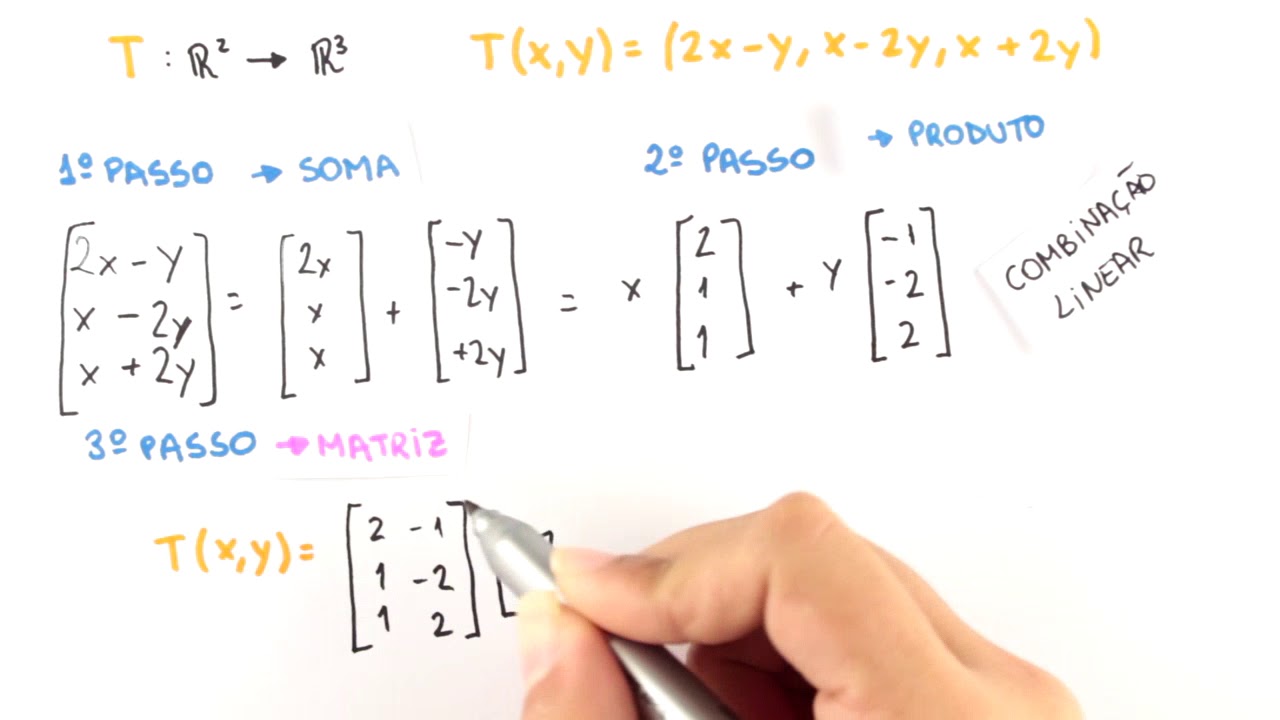 T : ℝ² → ℝ³
T(x,y) = (2x-y, x-2y, x+2y)
1º PASSO → SOMA
2º PASSO → PRODUTO
[2x - y] = [2x] + [-y] = x [2] + y [-1]
[x - 2y] [x] [-2y] [1] [-2]
[x + 2y] [x] [+2y] [1] [2]
COMBINAÇÃO
LINEAR
3º PASSO → MATRIZ
T(x,y) = [2 -1] [
[1 -2]
[1 2]